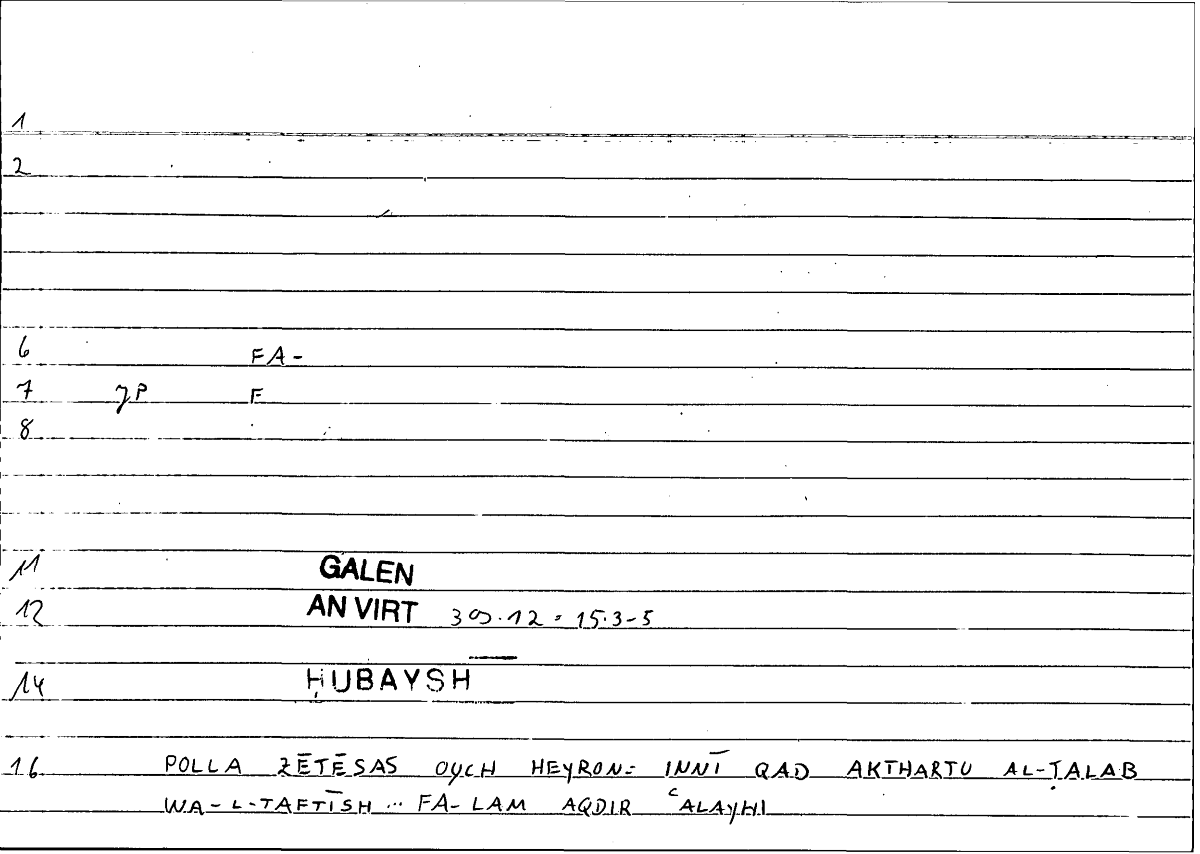 1
2
6 FA-
7 γP F
8
11 GALEN
12 AN VIRT 300.12 = 15.3-5
14 ḤUBAYSH
16 POLLA ZĒTĒSAS OYCH HEYRON: INNĪ QAD AKTHARTU AL-ṬALAB
WA-L-TAFTĪSH ... FA-LAM AQDIR ʿALAYHI